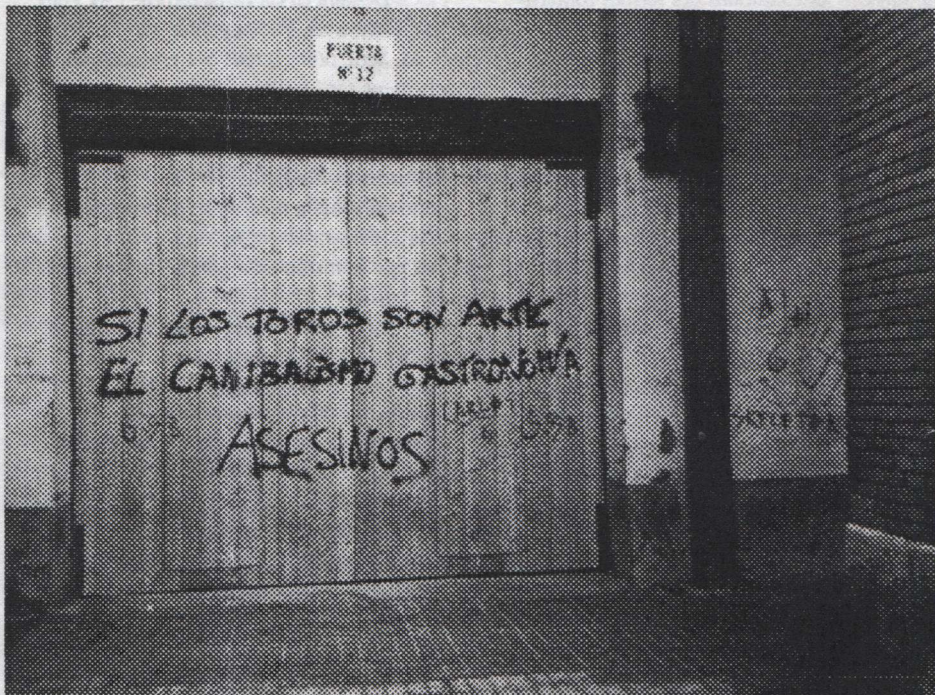 PUERTA
Nº 12
SI LOS TOROS SON ARTE
EL CANIBALISMO GASTRONOMÍA
ASESINOS